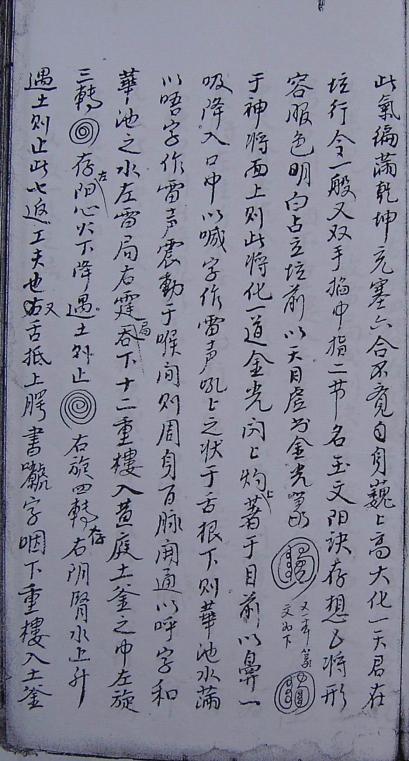 此氣徧滿乾坤充塞六合不覚自身巍上高大化一天君在
坛行令一般又双手掐中指二节名玉文阳诀存想召将形
容服色明白占立坛前以天目虚书金光
又二
文如下
于神将面上则此将化一道金光闪上灼上著于目前以鼻一
吸降入口中以喊字作雷声吼上之状于舌根下则華池水满
以唔字作雷声震動于喉间则周身百脉闹通以呼字和
華池之水左雷局右霆局吞下十二重樓入黄庭土釜之中左旋
三轉 存左阳心火下降遇土则止 右旋四轉存右阴腎水上升
遇土则止此七返工夫也又舌抵上腭書字咽下重樓入土釜